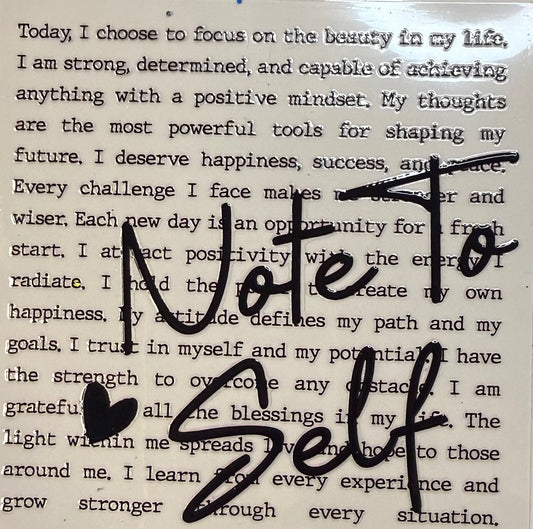 Today, I choose to focus on the beauty in my life.
I am strong, determined, and capable of achieving
anything with a positive mindset. My thoughts
are the most powerful tools for shaping my
future. I deserve happiness, success, and peace.
Every challenge I face makes me stronger and
wiser. Each new day is an opportunity for a fresh
start. I attract positivity with the energy I
radiate. I hold the power to create my own
happiness. My attitude defines my path and my
goals. I trust in myself and my potential. I have
the strength to overcome any obstacle. I am
grateful for all the blessings in my life. The
light within me spreads love and hope to those
around me. I learn from every experience and
grow stronger through every situation.
Note To
Self